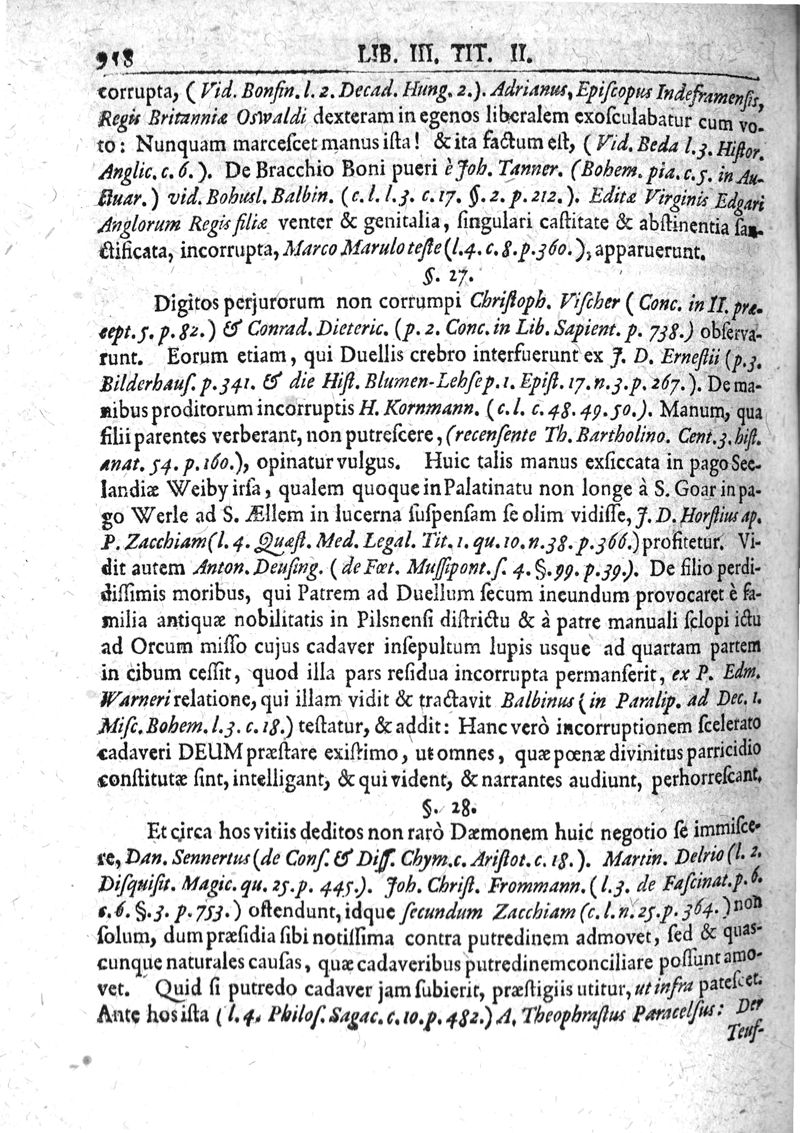 918 LIB. III. TIT. II.
corrupta, (Vid. Bonſin. l. 2. Decad. Hung. 2.). Adrianus, Epiſcopus Indeframenſis,
Regis Britanniæ Oswaldi dexteram in egenos liberalem exoſculabatur cum vo-
to: Nunquam marceſcet manus iſta! & ita factum eſt, (Vid. Beda l. 3. Hiſtor.
Anglic. c. 6.). De Bracchio Boni pueri è Joh. Tanner. (Bohem. pia. c. 5. in Au-
ctuar.) vid. Bohusl. Balbin. (c. l. l. 3. c. 17. §. 2. p. 212.). Editæ Virginis Edgari
Anglorum Regis filiæ venter & genitalia, ſingulari caſtitate & abſtinentia ſan-
ctificata, incorrupta, Marco Marulo teſte (l. 4. c. 8. p. 360.), apparuerunt.
§. 27.
Digitos perjurorum non corrumpi Chriſtoph. Viſcher (Conc. in II. præ-
cept. 5. p. 82.) & Conrad. Dieteric. (p. 2. Conc. in Lib. Sapient. p. 738.) obſerva-
runt. Eorum etiam, qui Duellis crebro interfuerunt ex J. D. Erneſtii (p. 3.
Bilderhauſ. p. 341. & die Hiſt. Blumen-Lehſe p. 1. Epiſt. 17. n. 3. p. 267.). De ma-
nibus proditorum incorruptis H. Kornmann. (c. l. c. 48. 49. 50.). Manum, qua
filii parentes verberant, non putreſcere, (recenſente Th. Bartholino. Cent. 3. hiſt.
anat. 54. p. 160.), opinatur vulgus. Huic talis manus exſiccata in pago See-
landiæ Weiby irſa, qualem quoque in Palatinatu non longe à S. Goar in pa-
go Werle ad S. Ællem in lucerna ſuſpenſam ſe olim vidiſſe, J. D. Horſtius ap.
P. Zacchiam (l. 4. Quæſt. Med. Legal. Tit. 1. qu. 10. n. 38. p. 366.) profitetur. Vi-
dit autem Anton. Deuſing. (de Fœt. Muſſipont. ſ. 4. §. 99. p. 39.). De filio perdi-
diſſimis moribus, qui Patrem ad Duellum ſecum ineundum provocaret è fa-
milia antiquæ nobilitatis in Pilsnenſi diſtrictu & à patre manuali ſclopi ictu
ad Orcum miſſo cujus cadaver inſepultum lupis usque ad quartam partem
in cibum ceſſit, quod illa pars reſidua incorrupta permanſerit, ex P. Edm.
Warneri relatione, qui illam vidit & tractavit Balbinus (in Paralip. ad Dec. 1.
Miſc. Bohem. l. 3. c. 18.) teſtatur, & addit: Hanc verò incorruptionem ſcelerato
cadaveri DEUM præſtare exiſtimo, ut omnes, quæ pœnæ divinitus parricidio
conſtitutæ ſint, intelligant, & qui vident, & narrantes audiunt, perhorreſcant.
§. 28.
Et circa hos vitiis deditos non rarò Dæmonem huic negotio ſe immiſce-
re, Dan. Sennertus (de Conſ. & Diſſ. Chym. c. Ariſtot. c. 18.). Martin. Delrio (l. 2.
Diſquiſit. Magic. qu. 25. p. 445.). Joh. Chriſt. Frommann. (l. 3. de Faſcinat. p. 6.
c. 6. §. 3. p. 753.) oſtendunt, idque ſecundum Zacchiam (c. l. n. 25. p. 364.) non
ſolum, dum præſidia ſibi notiſſima contra putredinem admovet, ſed & quas-
cunque naturales cauſas, quæ cadaveribus putredinem conciliare poſſunt amo-
vet. Quid ſi putredo cadaver jam ſubierit, præſtigiis utitur, ut infra pateſcet.
Ante hos iſta (l. 4. Philoſ. Sagac. c. 10. p. 482.) A. Theophraſtus Paracelſus: Der
Teuf-